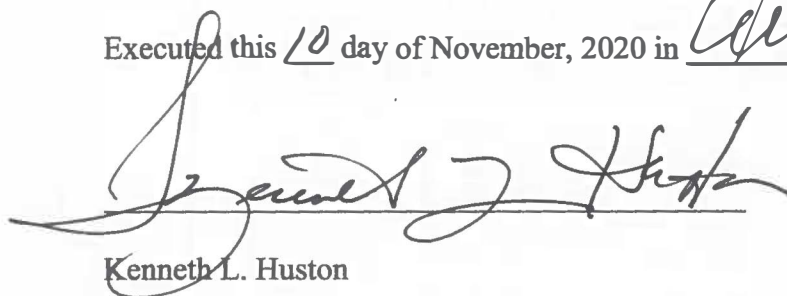 Executed this 10 day of November, 2020 in
Kenneth L. Huston
Kenneth L. Huston